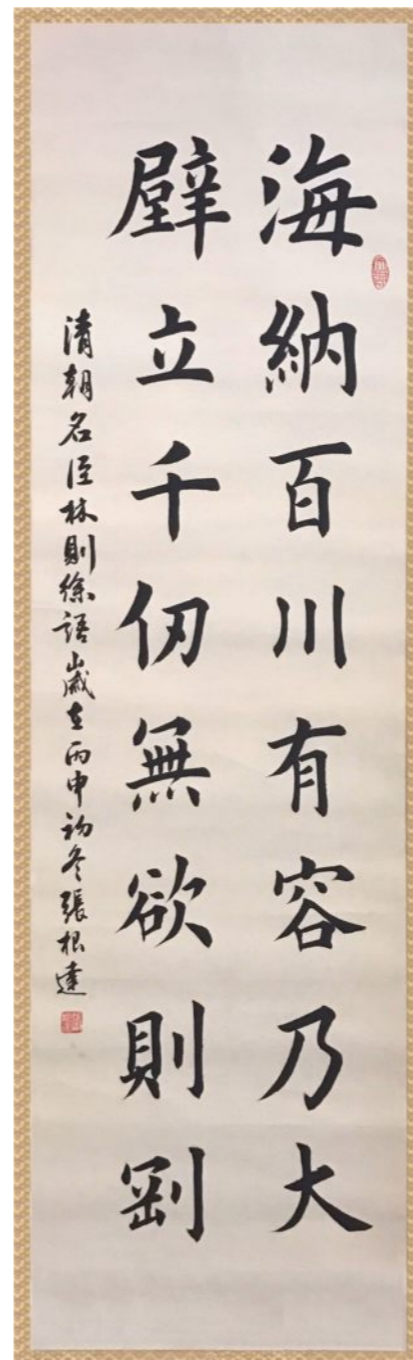 海納百川有容乃大
壁立千仞無欲則剛
清朝名臣林則徐語歲在丙申初冬張根達